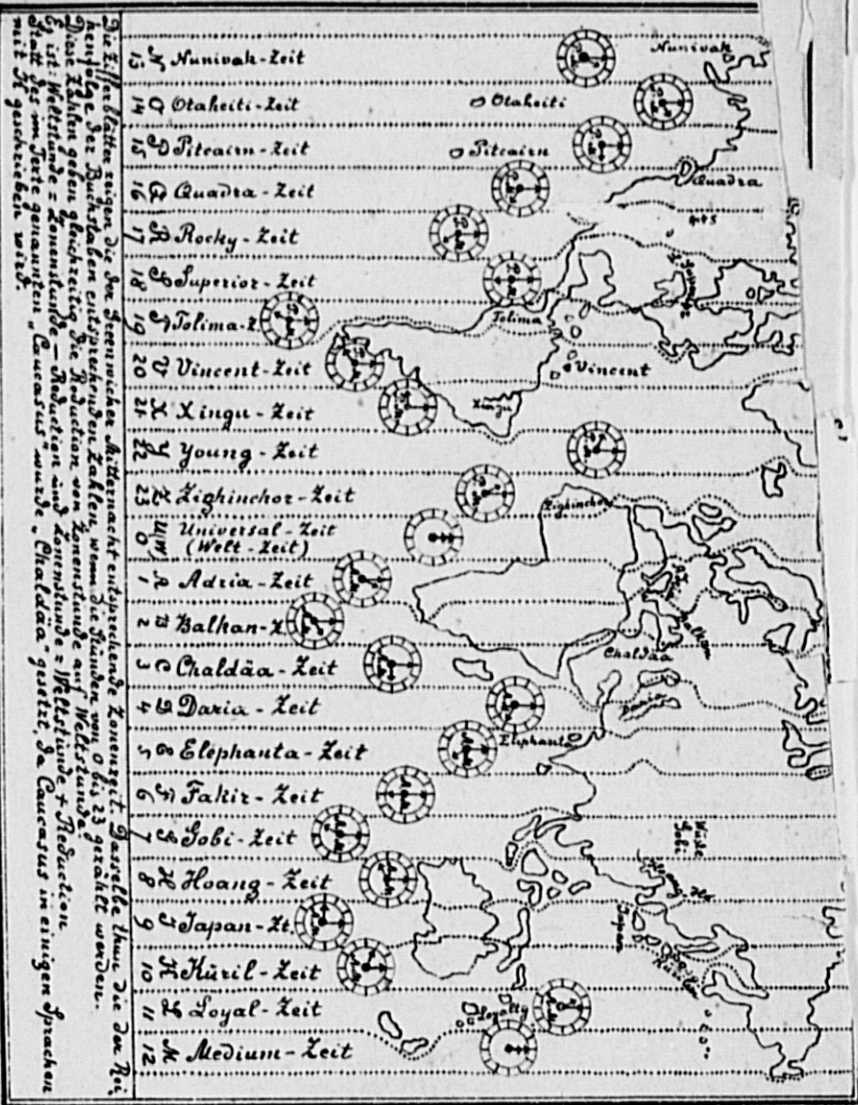 13 N Nunivak-Zeit
14 O Otaheiti-Zeit
15 P Pitcairn-Zeit
16 Q Quadra-Zeit
17 R Rocky-Zeit
18 S Superior-Zeit
19 T Tolima-Z.
20 V Vincent-Zeit
21 X Xingu-Zeit
22 Y Young-Zeit
23 Z Zighinchor-Zeit
0 U/W Universal-Zeit
(Welt-Zeit)
1 A Adria-Zeit
2 B Balkan-Z.
3 C Chaldäa-Zeit
4 D Daria-Zeit
5 E Elephanta-Zeit
6 F Fakir-Zeit
7 G Gobi-Zeit
8 H Hoang-Zeit
9 J Japan-Zt.
10 K Küril-Zeit
11 L Loyal-Zeit
12 M Medium-Zeit
Nunivak
Otaheiti
Pitcairn
Quadra
Tolima
Vincent
Xingu
Zighinchor
Balkan
Chaldäa
Daria
Elephanta
Wüste
Gobi
Hoang Ho
Japan
Kurilen
Loyalty
Die Zifferblätter zeigen die der Greenwicher Mitternacht entsprechende Zonenzeit. Dasselbe thun die der Rei
henfolge der Buchstaben entsprechenden Zahlen, wenn die Stunden von 0 bis 23 gezählt werden.
Diese Zahlen geben gleichzeitig die Reduction von Zonenstunde auf Weltstunde.
Es ist: Weltstunde = Zonenstunde - Reduction und Zonenstunde = Weltstunde + Reduction
Statt des im Texte genannten „Caucasus" wurde „Chaldäa" gesetzt, da Caucasus in einigen Sprachen
mit K geschrieben wird.